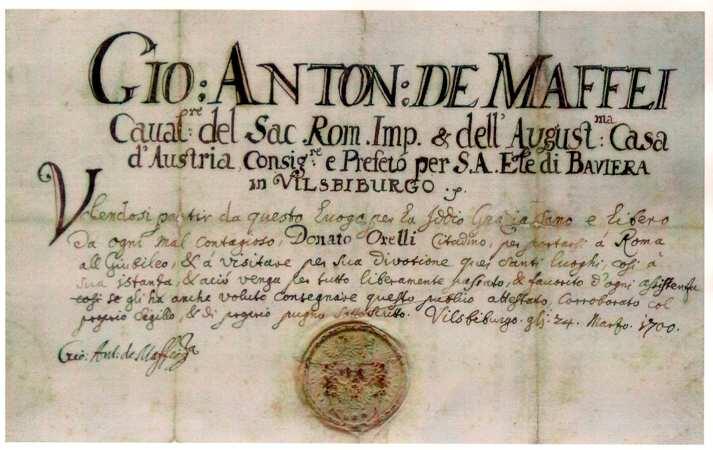 GIO: ANTON: DE MAFFEI
Caual:re del Sac. Rom. Imp. & dell'August:ma Casa
d'Austria, Consig:re e Prefeto per S.A. Ele di BAVIERA
in VILSBIBURGO .p.
Volendosi partir da questo Luogo per la Iddio Grazia sano e libero
da ogni mal contagioso, Donato Orelli Citadino, per portarsi á Roma
all Giubileo, & á visitare per sua divotione quei santi luoghi, cosi à
sua istanza, & ació venga per tutto liberamente passato, & favorito d'ogni assistenza
cosi se gli ha anche voluto consegnare questo publico attestato, corroborato col
proprio Sigillo, & di proprio pugno sottoscritto. Vilsbiburgo. gli: 24. Marzo. 1700.
Gio: Ant: de Maffei